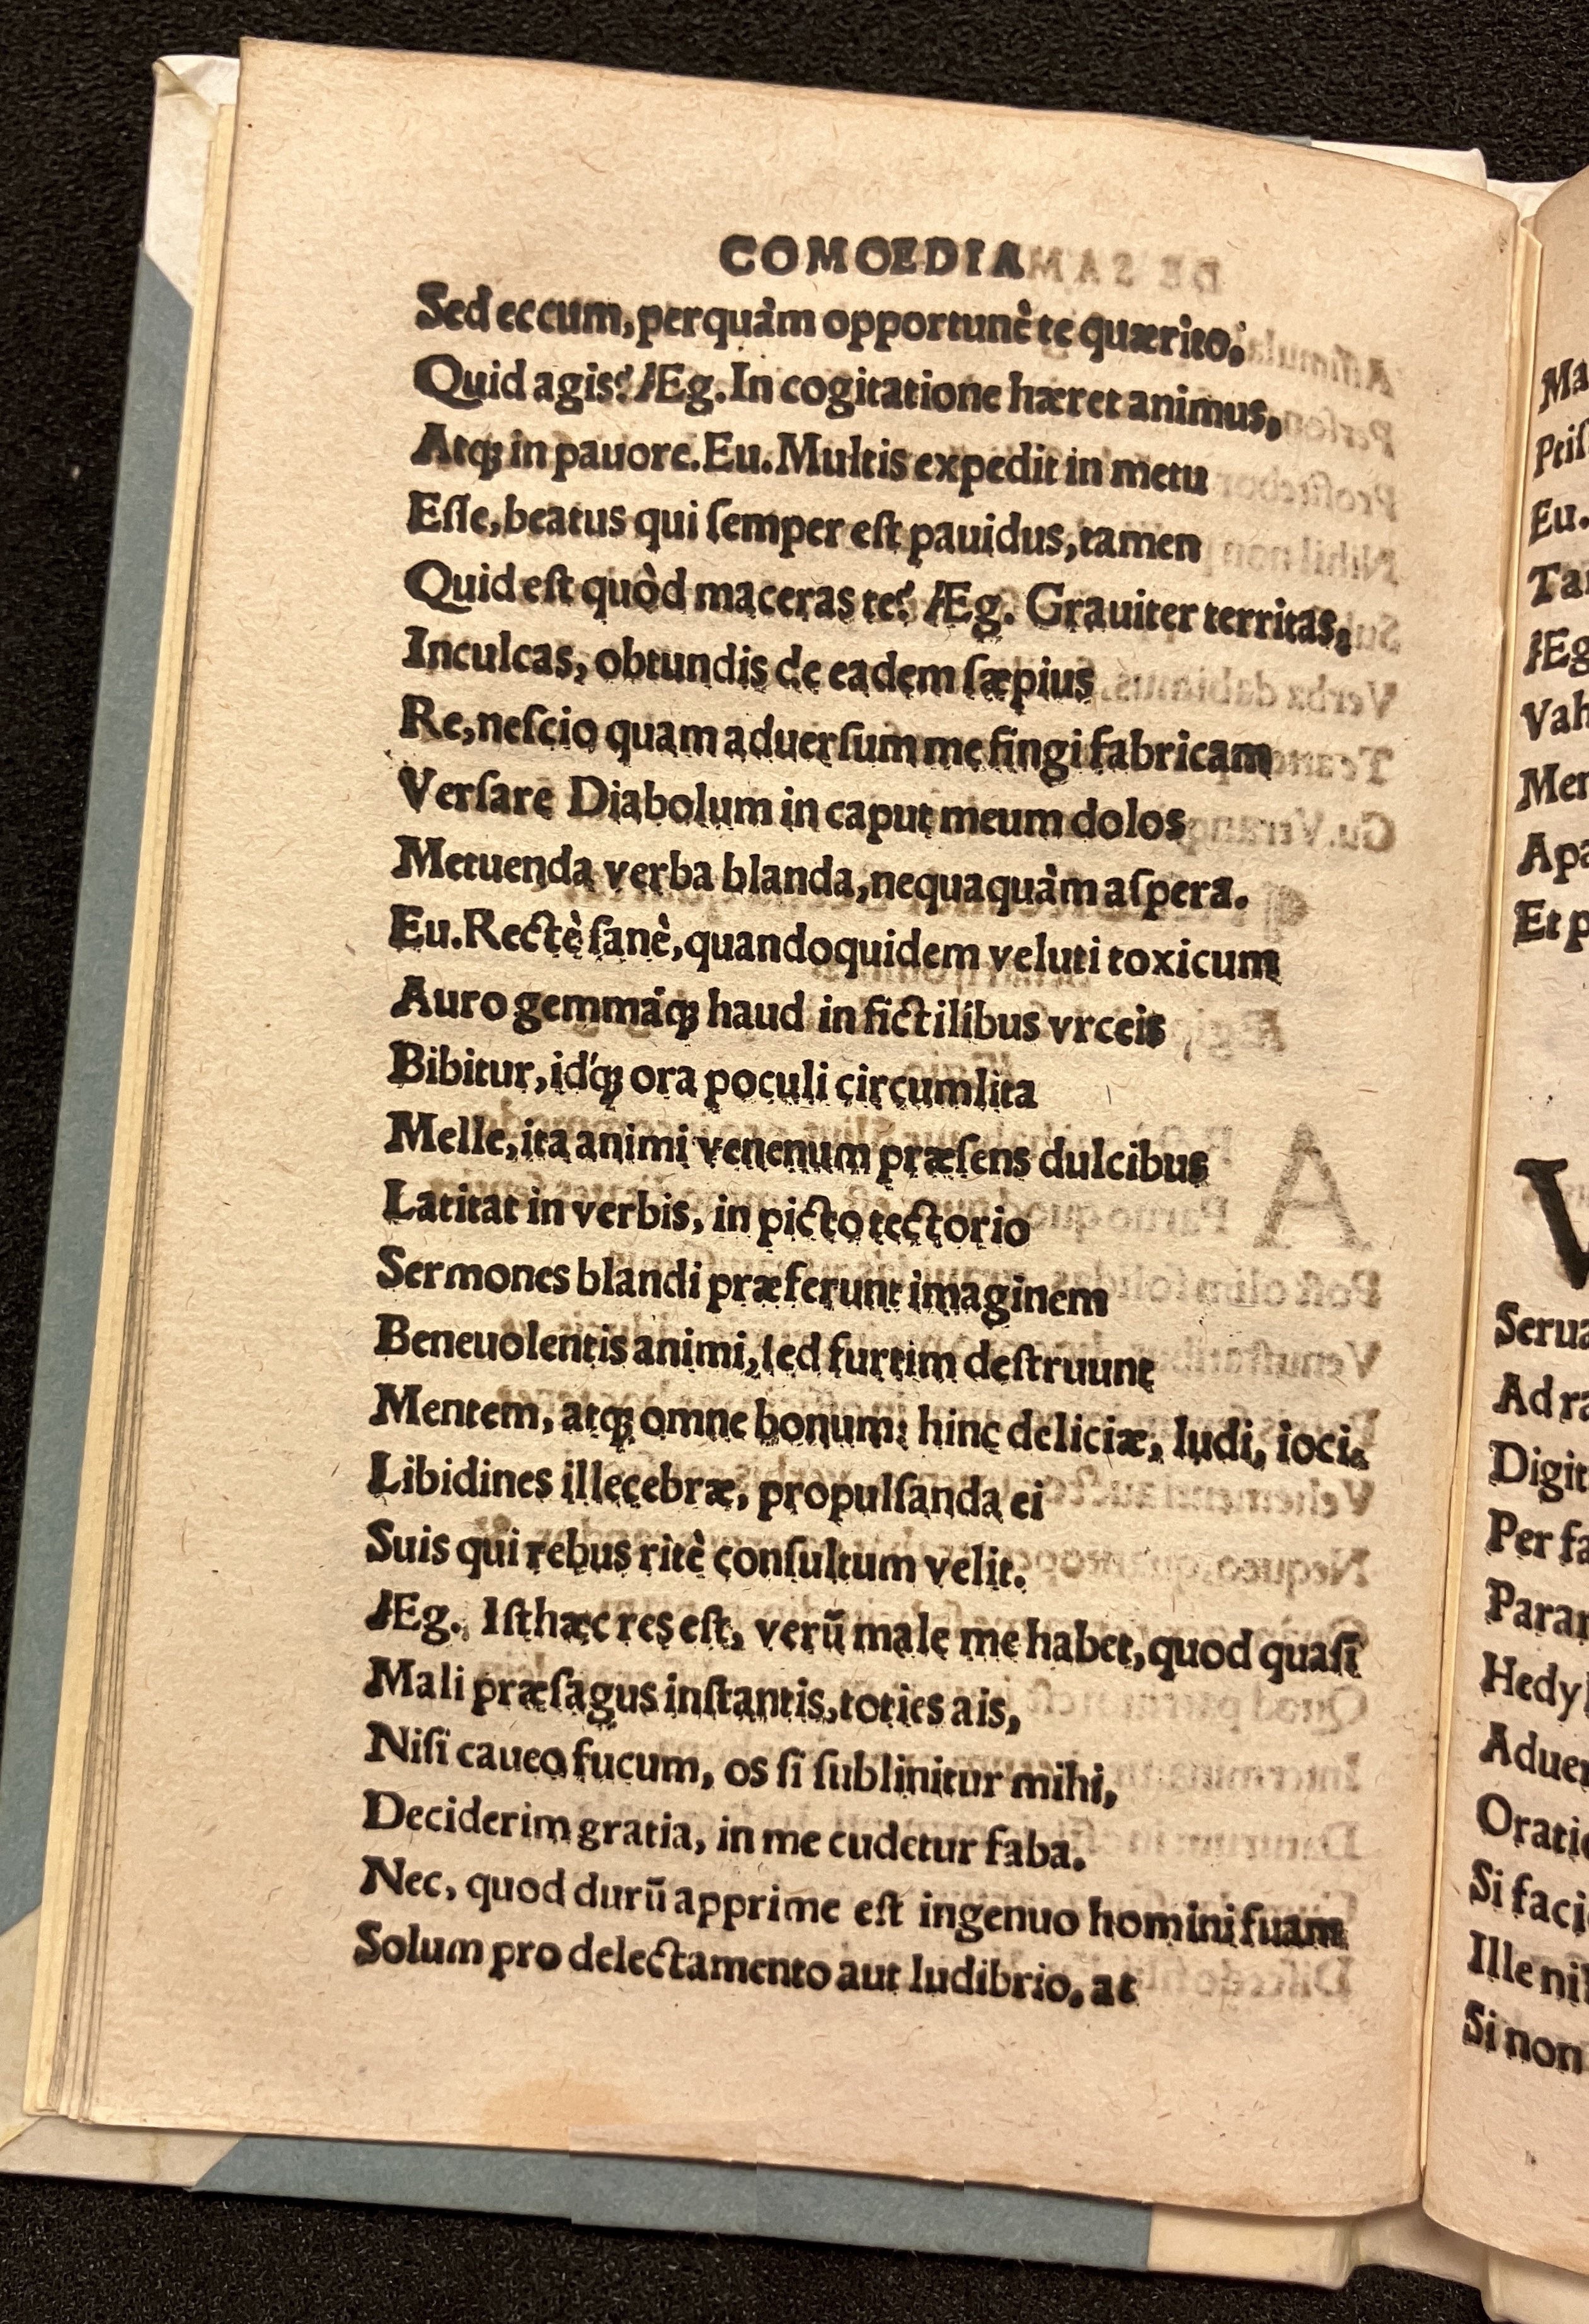 COMOEDIA
Sed eccum, perquàm opportunè te quærito,
Quid agis? Æg. In cogitatione hæret animus,
Atq; in pauore. Eu. Multis expedit in metu
Eſſe, beatus qui ſemper eſt pauidus, tamen
Quid eſt quòd maceras te? Æg. Grauiter territas,
Inculcas, obtundis de eadem ſæpius
Re, neſcio quam aduerſum me fingi fabricam
Verſare Diabolum in caput meum dolos
Metuenda verba blanda, nequaquàm aſpera.
Eu. Rectè ſanè, quandoquidem veluti toxicum
Auro gemmáq; haud in fictilibus vrceis
Bibitur, idq́; ora poculi circumlita
Melle, ita animi venenum præſens dulcibus
Latitat in verbis, in picto tectorio
Sermones blandi præferunt imaginem
Beneuolentis animi, ſed furtim deſtruunt
Mentem, atq; omne bonum: hinc deliciæ, ludi, ioci.
Libidines illecebræ, propulſanda ei
Suis qui rebus ritè conſultum velit.
Æg. Iſthæc res eſt, verū male me habet, quod quaſi
Mali præſagus inſtantis, toties ais,
Niſi caueo fucum, os ſi ſublinitur mihi,
Deciderim gratia, in me cudetur faba.
Nec, quod durū apprime eſt ingenuo homini fuam
Solum pro delectamento aut ludibrio, at
Eu.
Æg
Vah
Et p
Ad ra
Digit
Per fa
Si faci
Ille ni
Si non